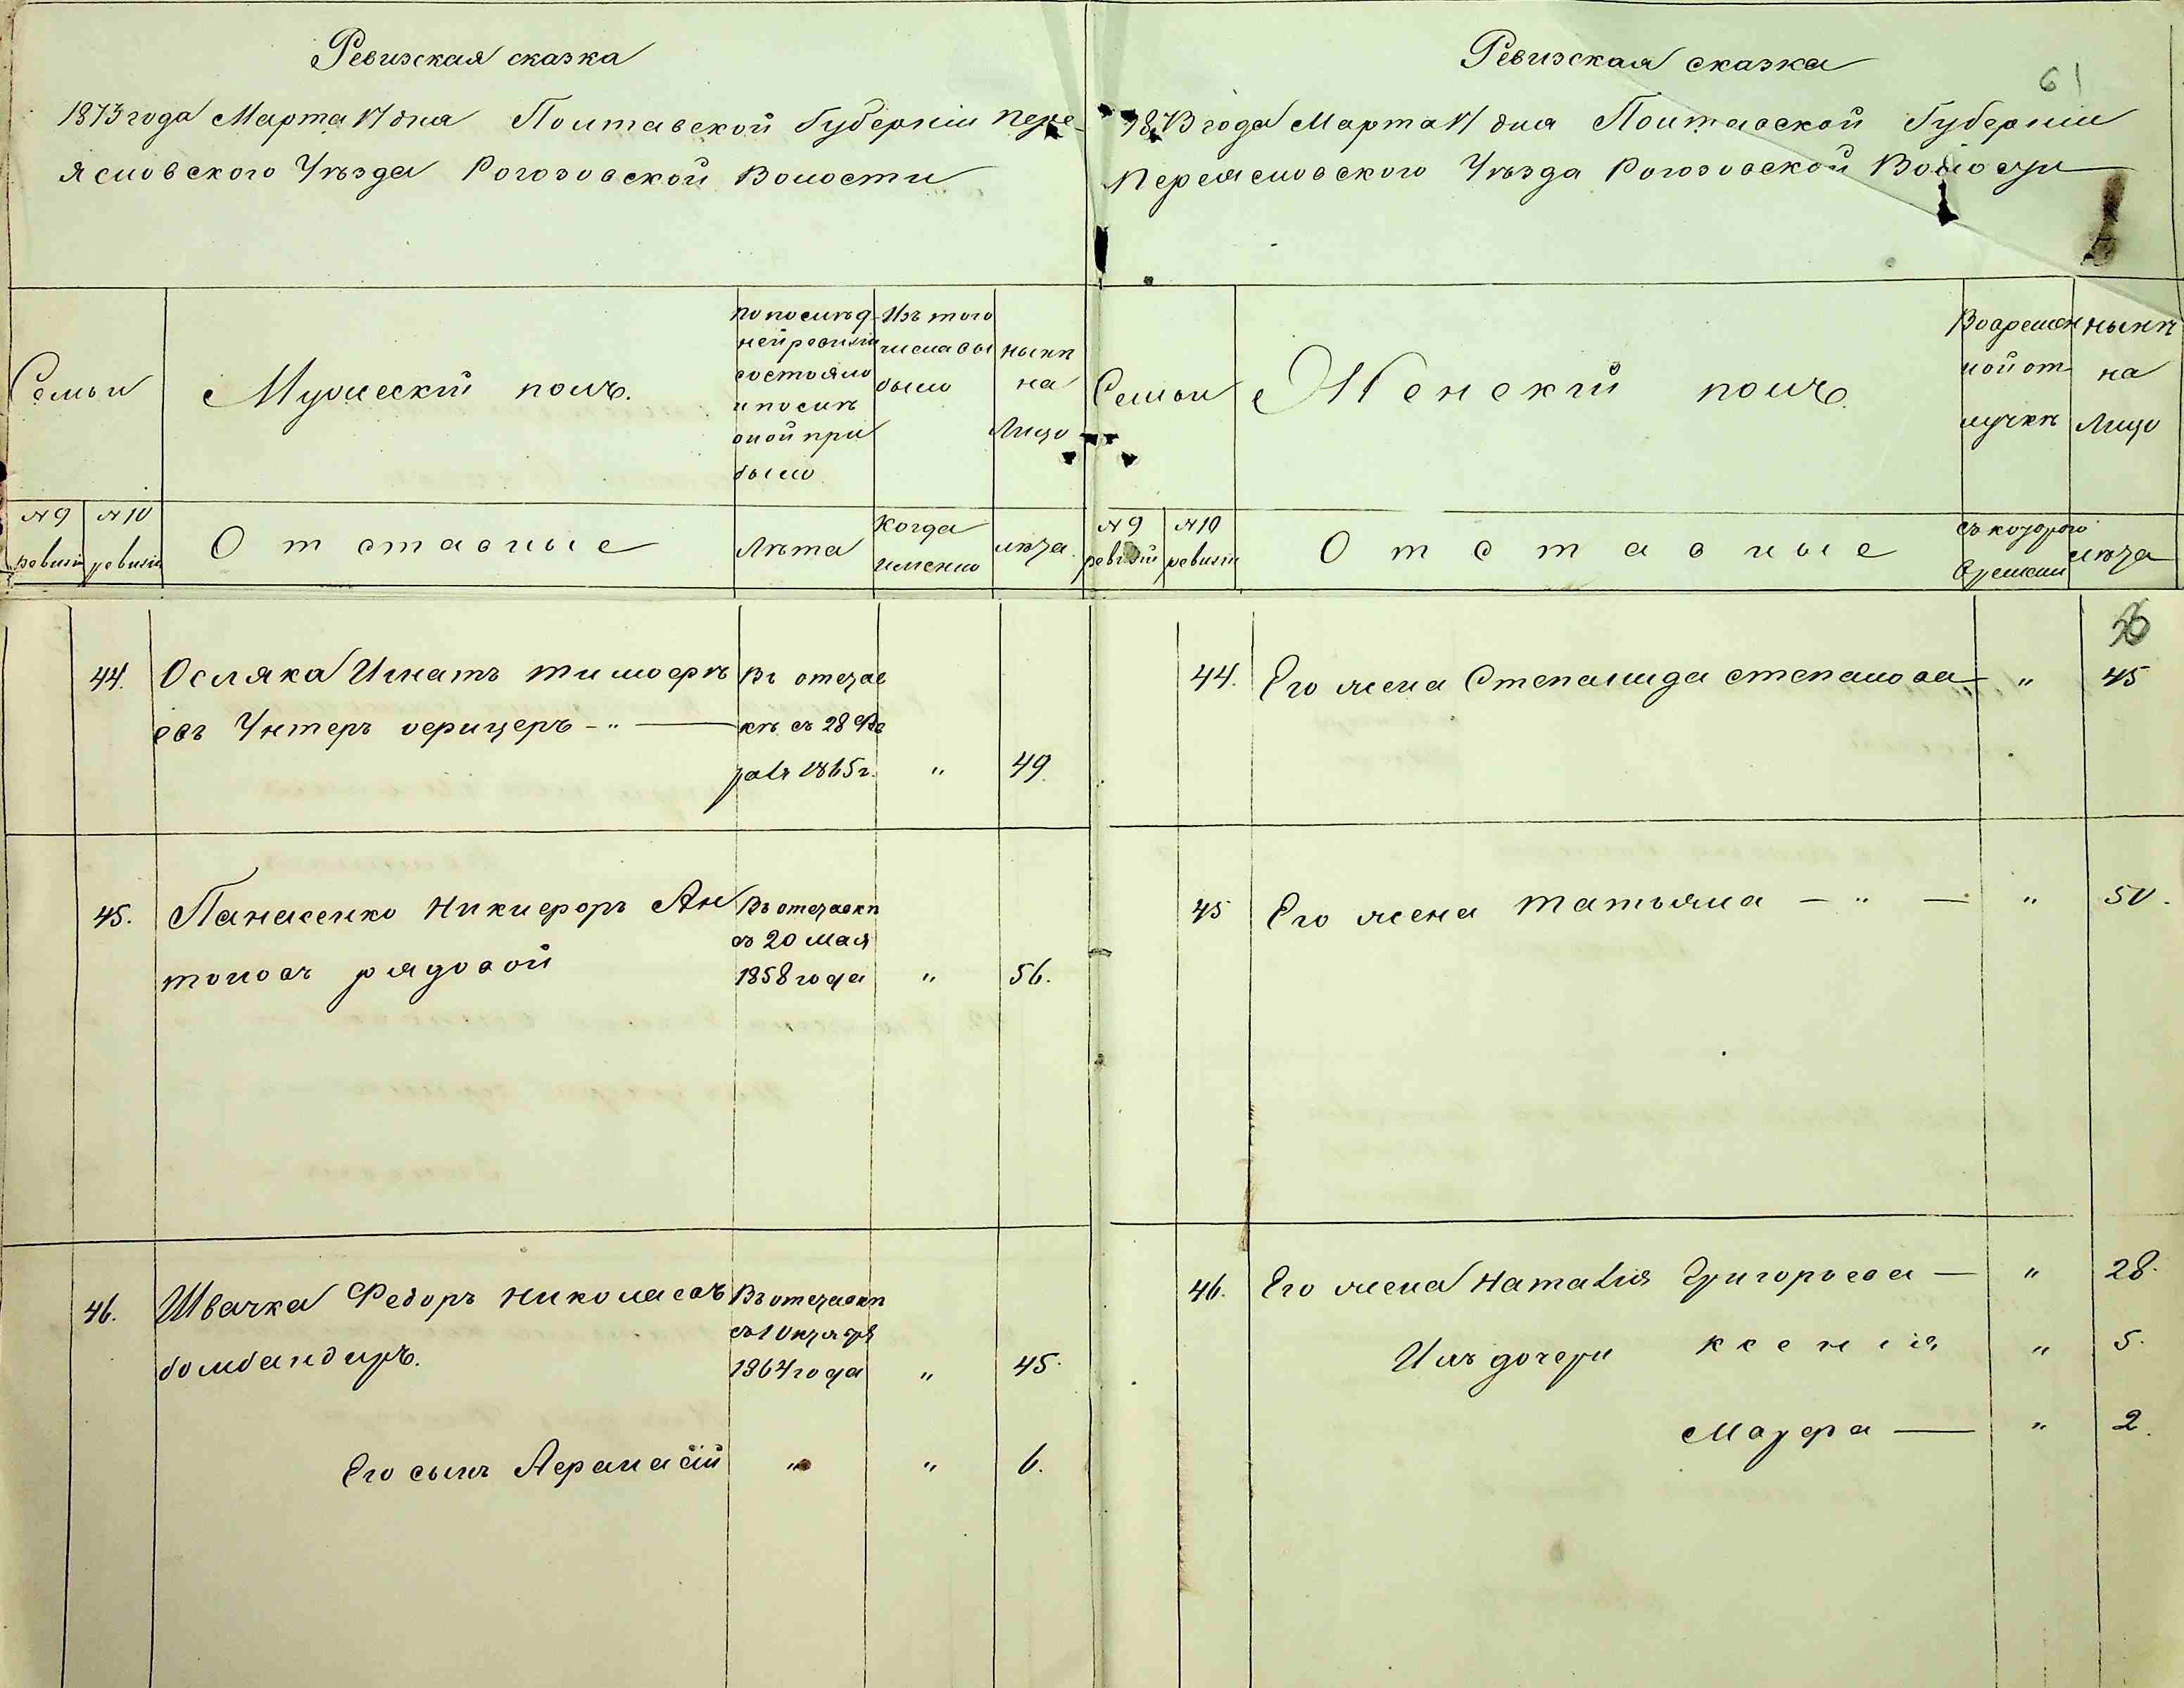 Ревизская сказка
1873 года Марта 17 дня Полтавской Губерніи Пере-
ясловского Уѣзда Рогозовской Волости
Семьи
Мужескій полъ.
по послѣд
ней ревизіи
состояло
и послѣ
оной при
было
Изъ того
числа вы
было
нынѣ
на
Лицо
№ 9
ревизіи
№ 10
ревизіи
Отставные
Лѣта
Когда
именно
лѣта
44. Осляка Игнатъ Тимофѣ
евъ Унтеръ офицеръ - " -
Въ отстав
кѣ съ 28 Фев
раля 1865 г. " 49.
45. Панасенко Никифоръ Ан
тоновъ рядовой
Въ отставкѣ
съ 20 мая
1858 года " 56.
46. Швачка Федоръ Николаевъ
бомбандиръ.
Въ отставкѣ
съ 1 Октября
1864 года " 45.
Его сынъ Афанасій " " 6.
Ревизская сказка
61
1873 года Марта 17 дня Полтавской Губерніи
Переясловского Уѣзда Рогозовской Волости
Семьи
Женскій полъ.
Во времен
ной от
лучкѣ
нынѣ
на
Лицо
№ 9
ревизіи
№ 10
ревизіи
Отставные
съ которого
времени
лѣта
44. Его жена Степанида Степанова - " 45
45 Его жена Татьяна - " - " 50.
46. Его жена Наталія Григорьева - " 28.
Ихъ дочери Ксенія " 5.
Мавра - " 2.